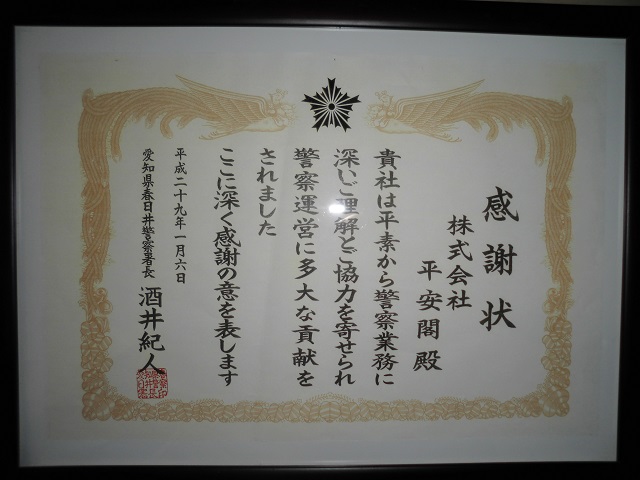 感謝状
株式会社
平安閣殿
貴社は平素から警察業務に
深いご理解とご協力を寄せられ
警察運営に多大な貢献を
されました
ここに深く感謝の意を表します
平成二十九年一月六日
愛知県春日井警察署長 酒井紀人